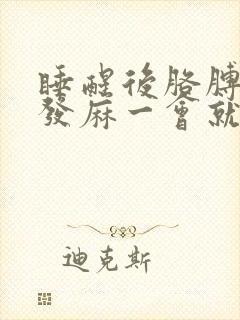 睡醒後胳膊
發麻一會就
迪克斯